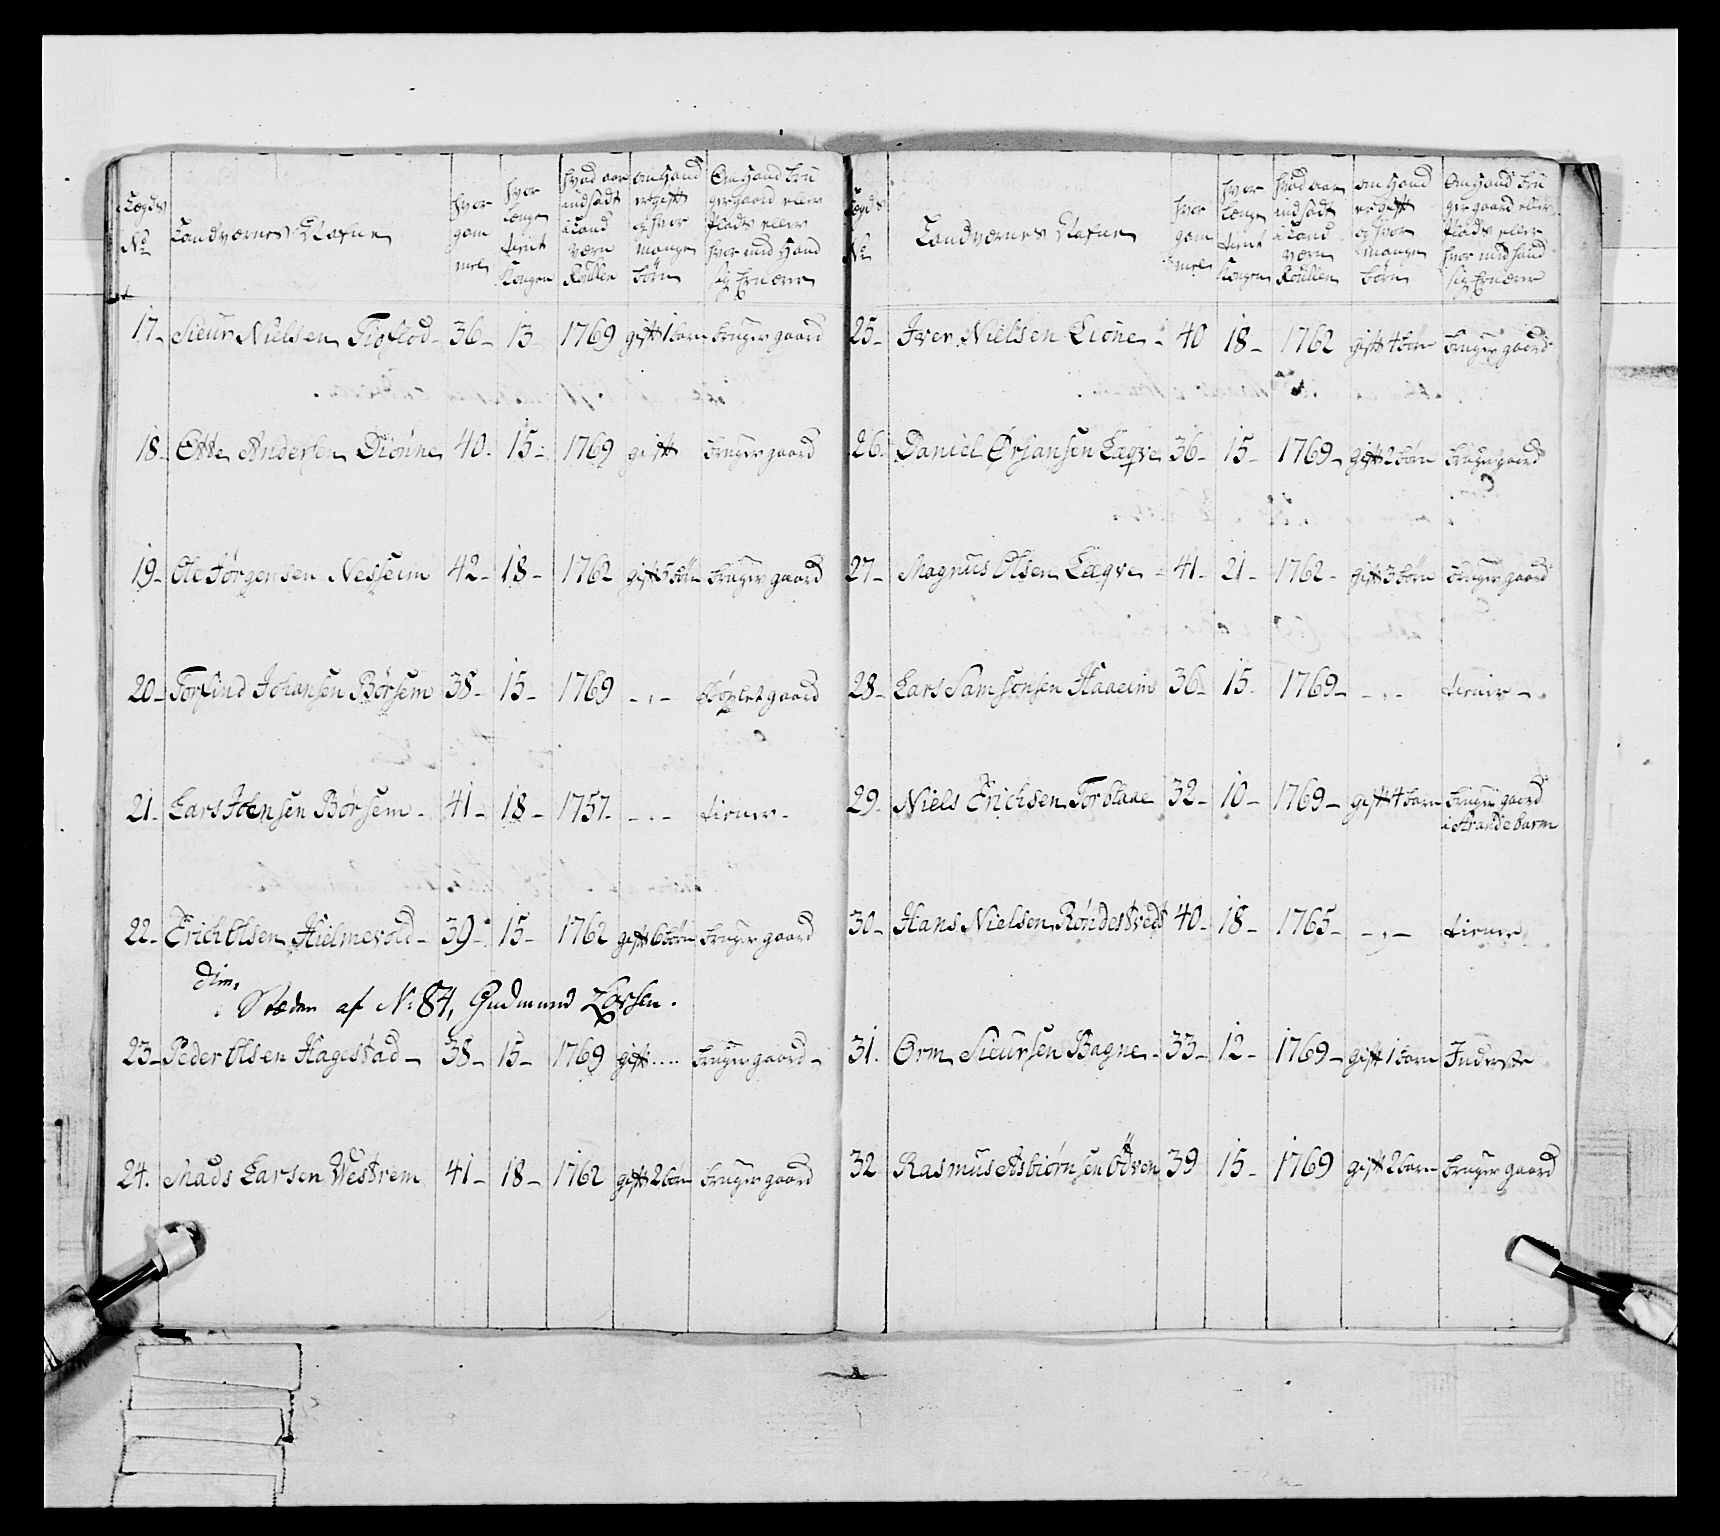 Lægds No
Landværnes Nafne
hvor gammel
hvor Længe tient Kongen
hvad aar indsadt i Land værn Roullen
om Hand er gift og hvor mange børn
Om Hand bruger gaard eller Plads eller hvor med Hand sig Ernærer
17- Sieur Nielsen Tioflod- 36- 13- 1769 gift 1 barn bruger gaard
18- Otte Andersen Diönne 40- 15- 1769 gift bruger gaard
19- Ole Jørgensen Nesheim 42- 18- 1762 gift 5 børn bruger gaard
20- Torfind Johansen Børsem 38- 15- 1769 - „ - gaard
21- Lars Joensen Børsem- 41- 18- 1757- - „ - tiener-
22- Erich Olsen Hielmevold- 39- 15- 1762 gift 6 børn bruger gaard
dim,
i Stæden af No 84, Gudmund Larsen.
23- Peder Olsen Hagestad- 38- 15- 1769 gift .... bruger gaard-
24. Mads Larsen Westrem 41- 18- 1762 gift 2 børn bruger gaard
Lægds No
Landværnes Nafne
hvor gammel
hvor Længe tient Kongen
hvad aar indsadt i Land værn Roullen
om Hand er gift og hvor mange børn
Om Hand bruger gaard eller Plads eller hvor med Hand sig Ernærer
25- Iver Nielsen Lione- 40 18- 1762 gift 4 børn bruger gaard
26- Daniel Ørjansen Lægve 36- 15- 1769- gift 2 børn bruger gaard
27- Magnus Olsen Lægve- 41- 21- 1762- gift 3 børn bruger gaard
28- Lars Samsonsen Haaeim 36- 15- 1769- - „ - tiener-
29- Niels Erichsen Torblaae 32- 10- 1769- gift 4 børn bruger gaard
i Strandebarm
30- Hans Nielsen Røndestvedt 40- 18- 1765- - „ - tiener
31. Orm Sieursen Bagne- 33- 12- 1769- gift 1 barn Inderste
32 Rasmus Asbiørnsen Ödven 39 15- 1769 gift 2 børn bruger gaard